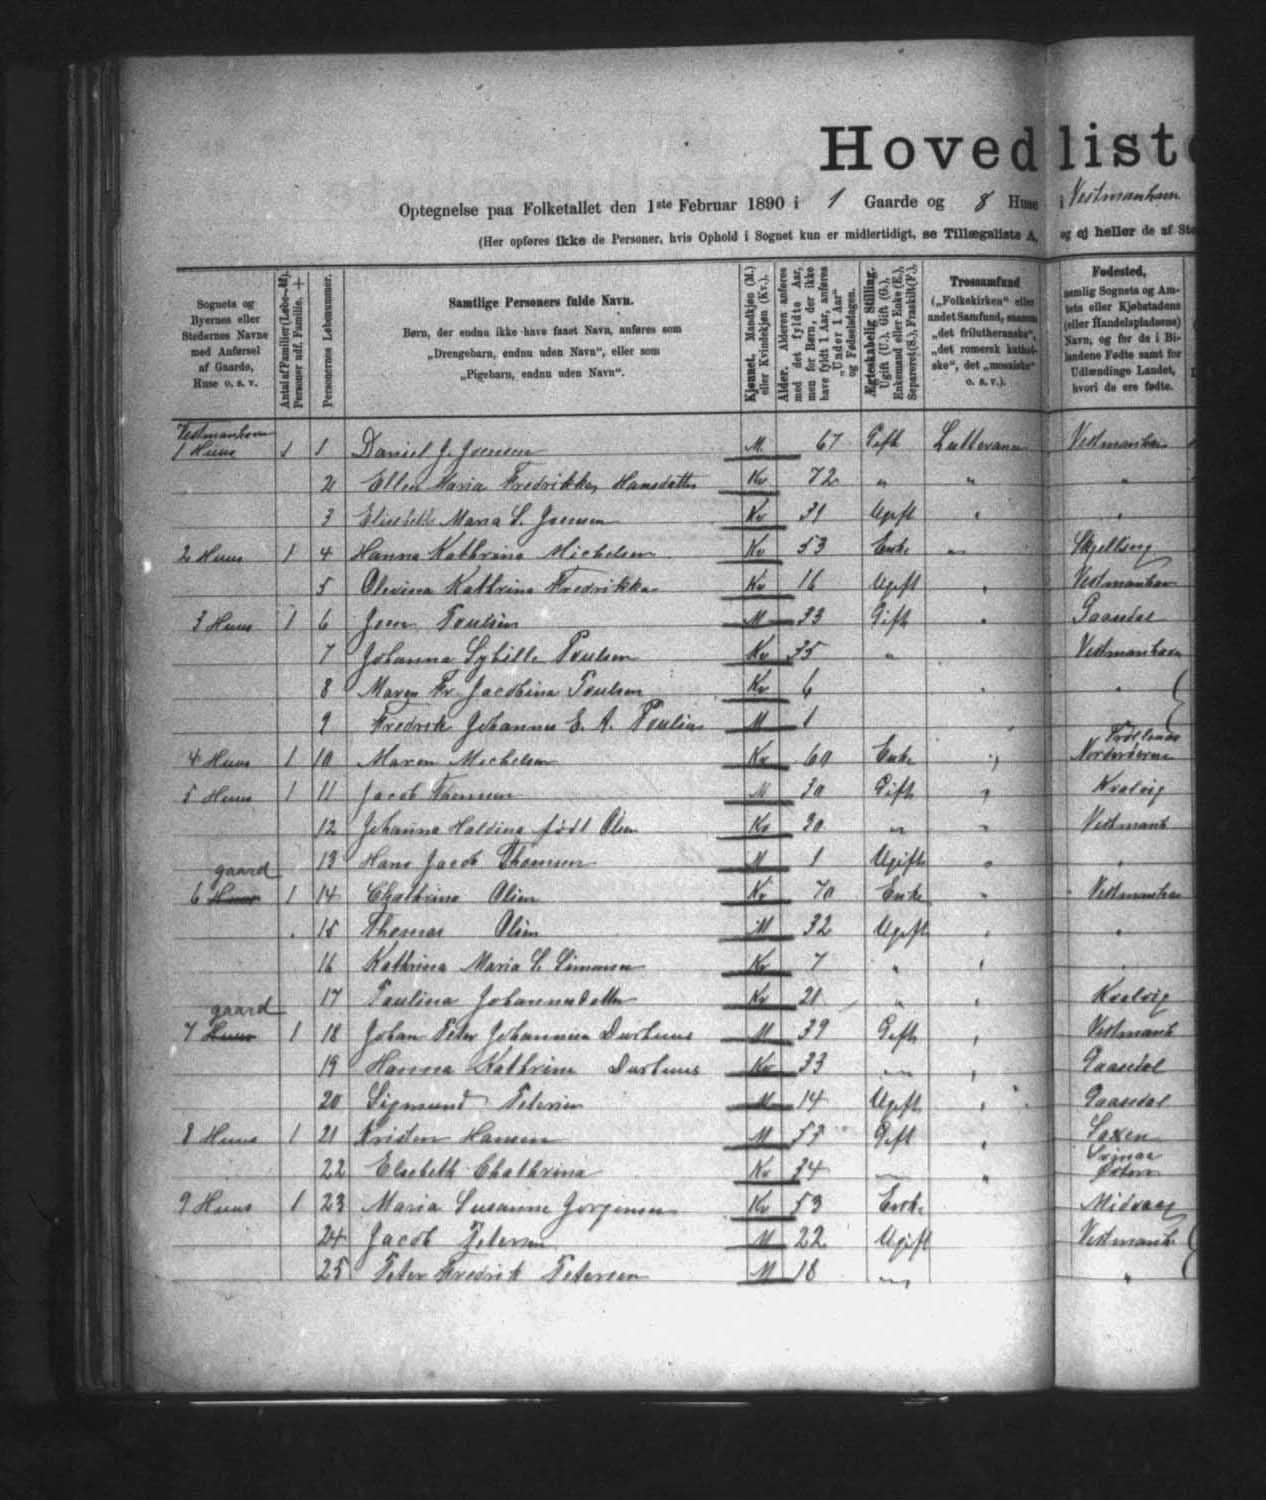 Hovedliste
Optegnelse paa Folketallet den 1ste Februar 1890 i 1 Gaarde og 8 Huse i Vestmanhavn
(Her opføres ikke de Personer, hvis Ophold i Sognet kun er midlertidigt, se Tillægsliste A, og ej heller de af
Sognets og Byernes eller Stedernes Navne med Anførsel af Gaarde, Huse o. s. v.
Personernes Løbenummer.
Samtlige Personers fulde Navn.
Børn, der endnu ikke have faaet Navn, anføres som
„Drengebarn, endnu uden Navn“, eller som
„Pigebarn, endnu uden Navn“.
Kjønnet. Mandkjøn (M.) eller Kvindekjøn (Kv.).
Alder. Alderen anføres med det fyldte Aar, men for Børn, der ikke have fyldt 1 Aar, anføres „Under 1 Aar“ og Fødselsdagen.
Ægteskabelig Stilling. Ugift (U.), Gift (G.), Enkemand eller Enke (E.), Separeret (S.), Fraskilt (F.).
Trossamfund („Folkekirken“ eller andet Samfund, saasom „det frilutheranske“, „det romersk katholske“, det „mosaiske“ o. s. v.).
Fødested, nemlig Sognets og Amtets eller Kjøbstadens (eller Handelspladsens) Navn, og for de i Bilandene Fødte samt for Udlændinge Landet, hvori de ere fødte.
Vestmanhavn
1 Huus 1 1 Daniel J. Joensen M. 67 Gift Vestmanhav
2 Ellen Maria Fredrikke Hansdatter Kv 72 " " "
3 Elisabeth Maria S. Joensen Kv 31 Ugift " "
2 Huus 1 4 Hanna Kathrina Michelsen Kv 53 Enke "
5 Olevina Kathrina Fredrikka Kv 16 Ugift " Vestmanhav
3 Huus 1 6 Joen Poulsen M 33 Gift " Gaasdal
7 Johanna Sybille Poulsen Kv 35 " Vestmanhavn
8 Maren Fr. Jacobina Poulsen Kv 6 " "
9 Fredrik Johannes E. A. Poulsen M 1 "
4 Huus 1 10 Maren Michelsen Kv 60 Enke " Norderöerne
5 Huus 1 11 Jacob Thomsen M 30 Gift " Kvalvig
12 Johanna født Olsen Kv 30 " " Vestmanh
13 Hans Jacob Thomsen M 1 Ugift " "
gaard
6 Huus 1 14 Chathrina Olsen Kv 70 Enke " Vestmanhav
15 Thomas Olsen M 32 Ugift " "
16 Kathrina Maria S. Simonsen Kv 7 " " "
17 Paulina Johannesdatter Kv 21 " " Kvalvig
gaard
7 Huus 1 18 Johan Peter Johannesen Durhuus M 39 Gift " Vestmanh
19 Hanna Kathrine Durhuus Kv 33 " " Gaasdal
20 Sigmund Petersen M 14 Ugift " Gaasdal
8 Huus 1 21 Kristen Hansen M Gift " Saxen
22 Elsebeth Chathrina Kv 34 " "
9 Huus 1 23 Maria Susanne Jorgensen Kv 53 Enke Midvaag
24 Jacob Petersen M 22 Ugift Vestmanh
25 Peter Fredrik Petersen M 18 " "